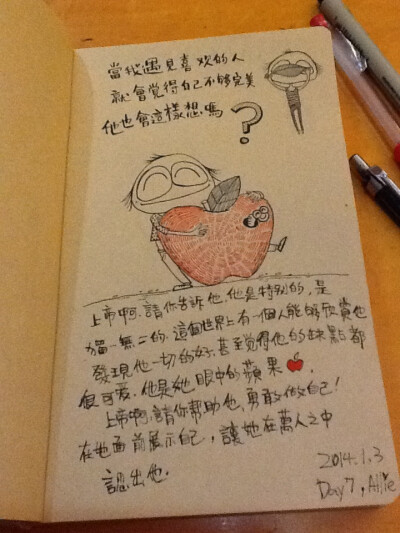 當我遇見喜欢的人
就會覺得自己不够完美
他也會這樣想嗎?
上帝啊,請你告訴他,他是特别的,是
獨一無二的.這個世界上有一個人能够欣賞他
發現他一切的好.甚至觉得他的缺點都
很可爱.他是她眼中的蘋果.
上帝啊,請你幫助他,勇敢做自己!
在她面前展示自己,讓她在萬人之中
認出他.
2014.1.3
Day7,Allie